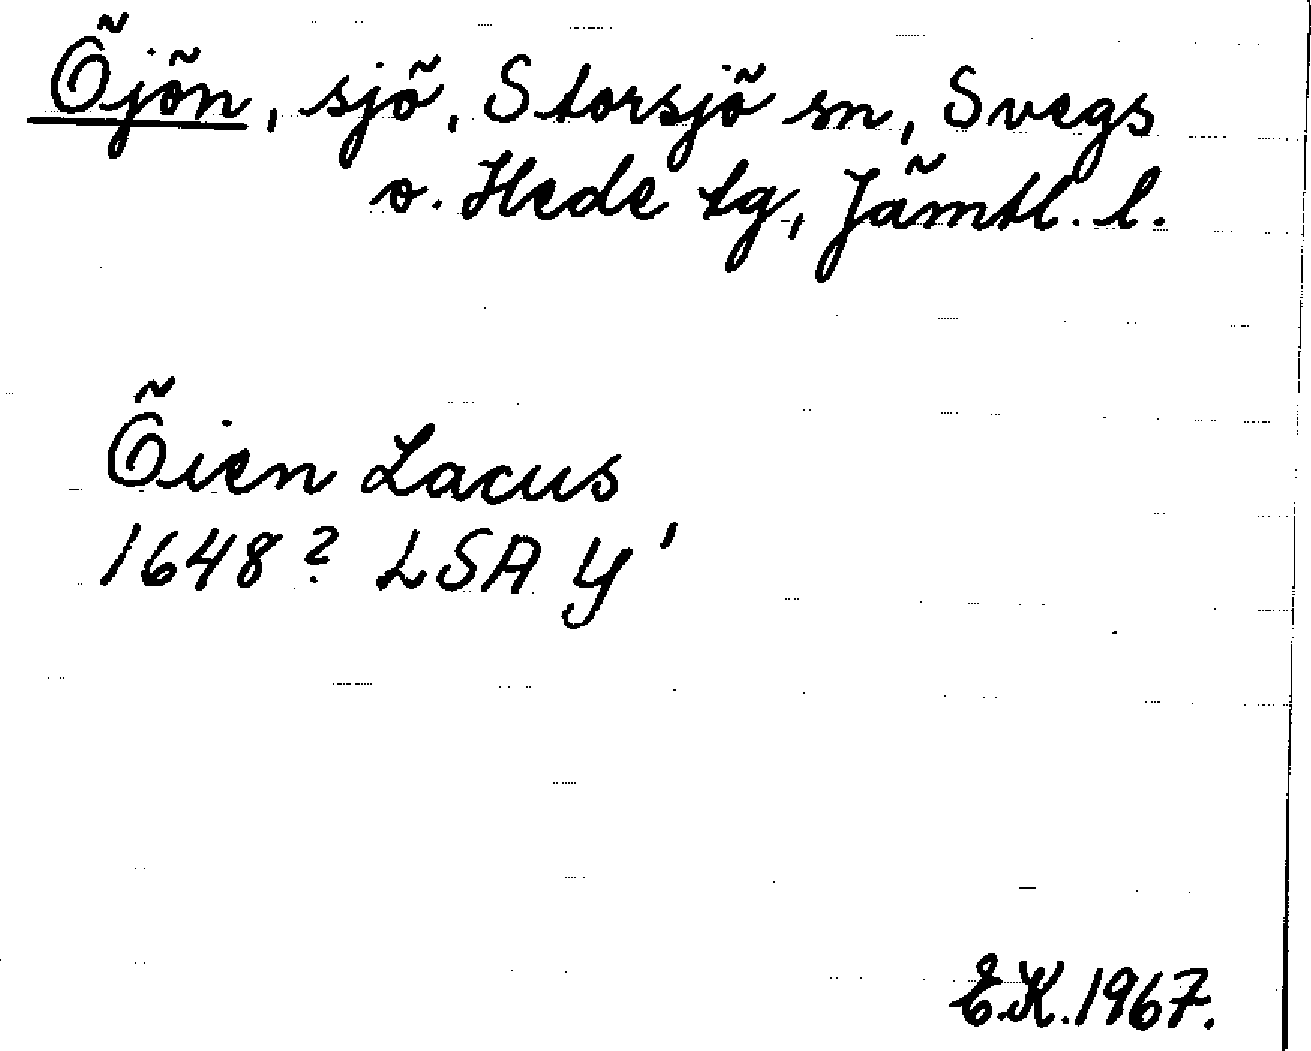 Öjön, sjö, Storsjö sn, Svegs
o. Hede tg, Jämtl. l.
Öien Lacus
1648? LSA Y¹
E.K. 1967.